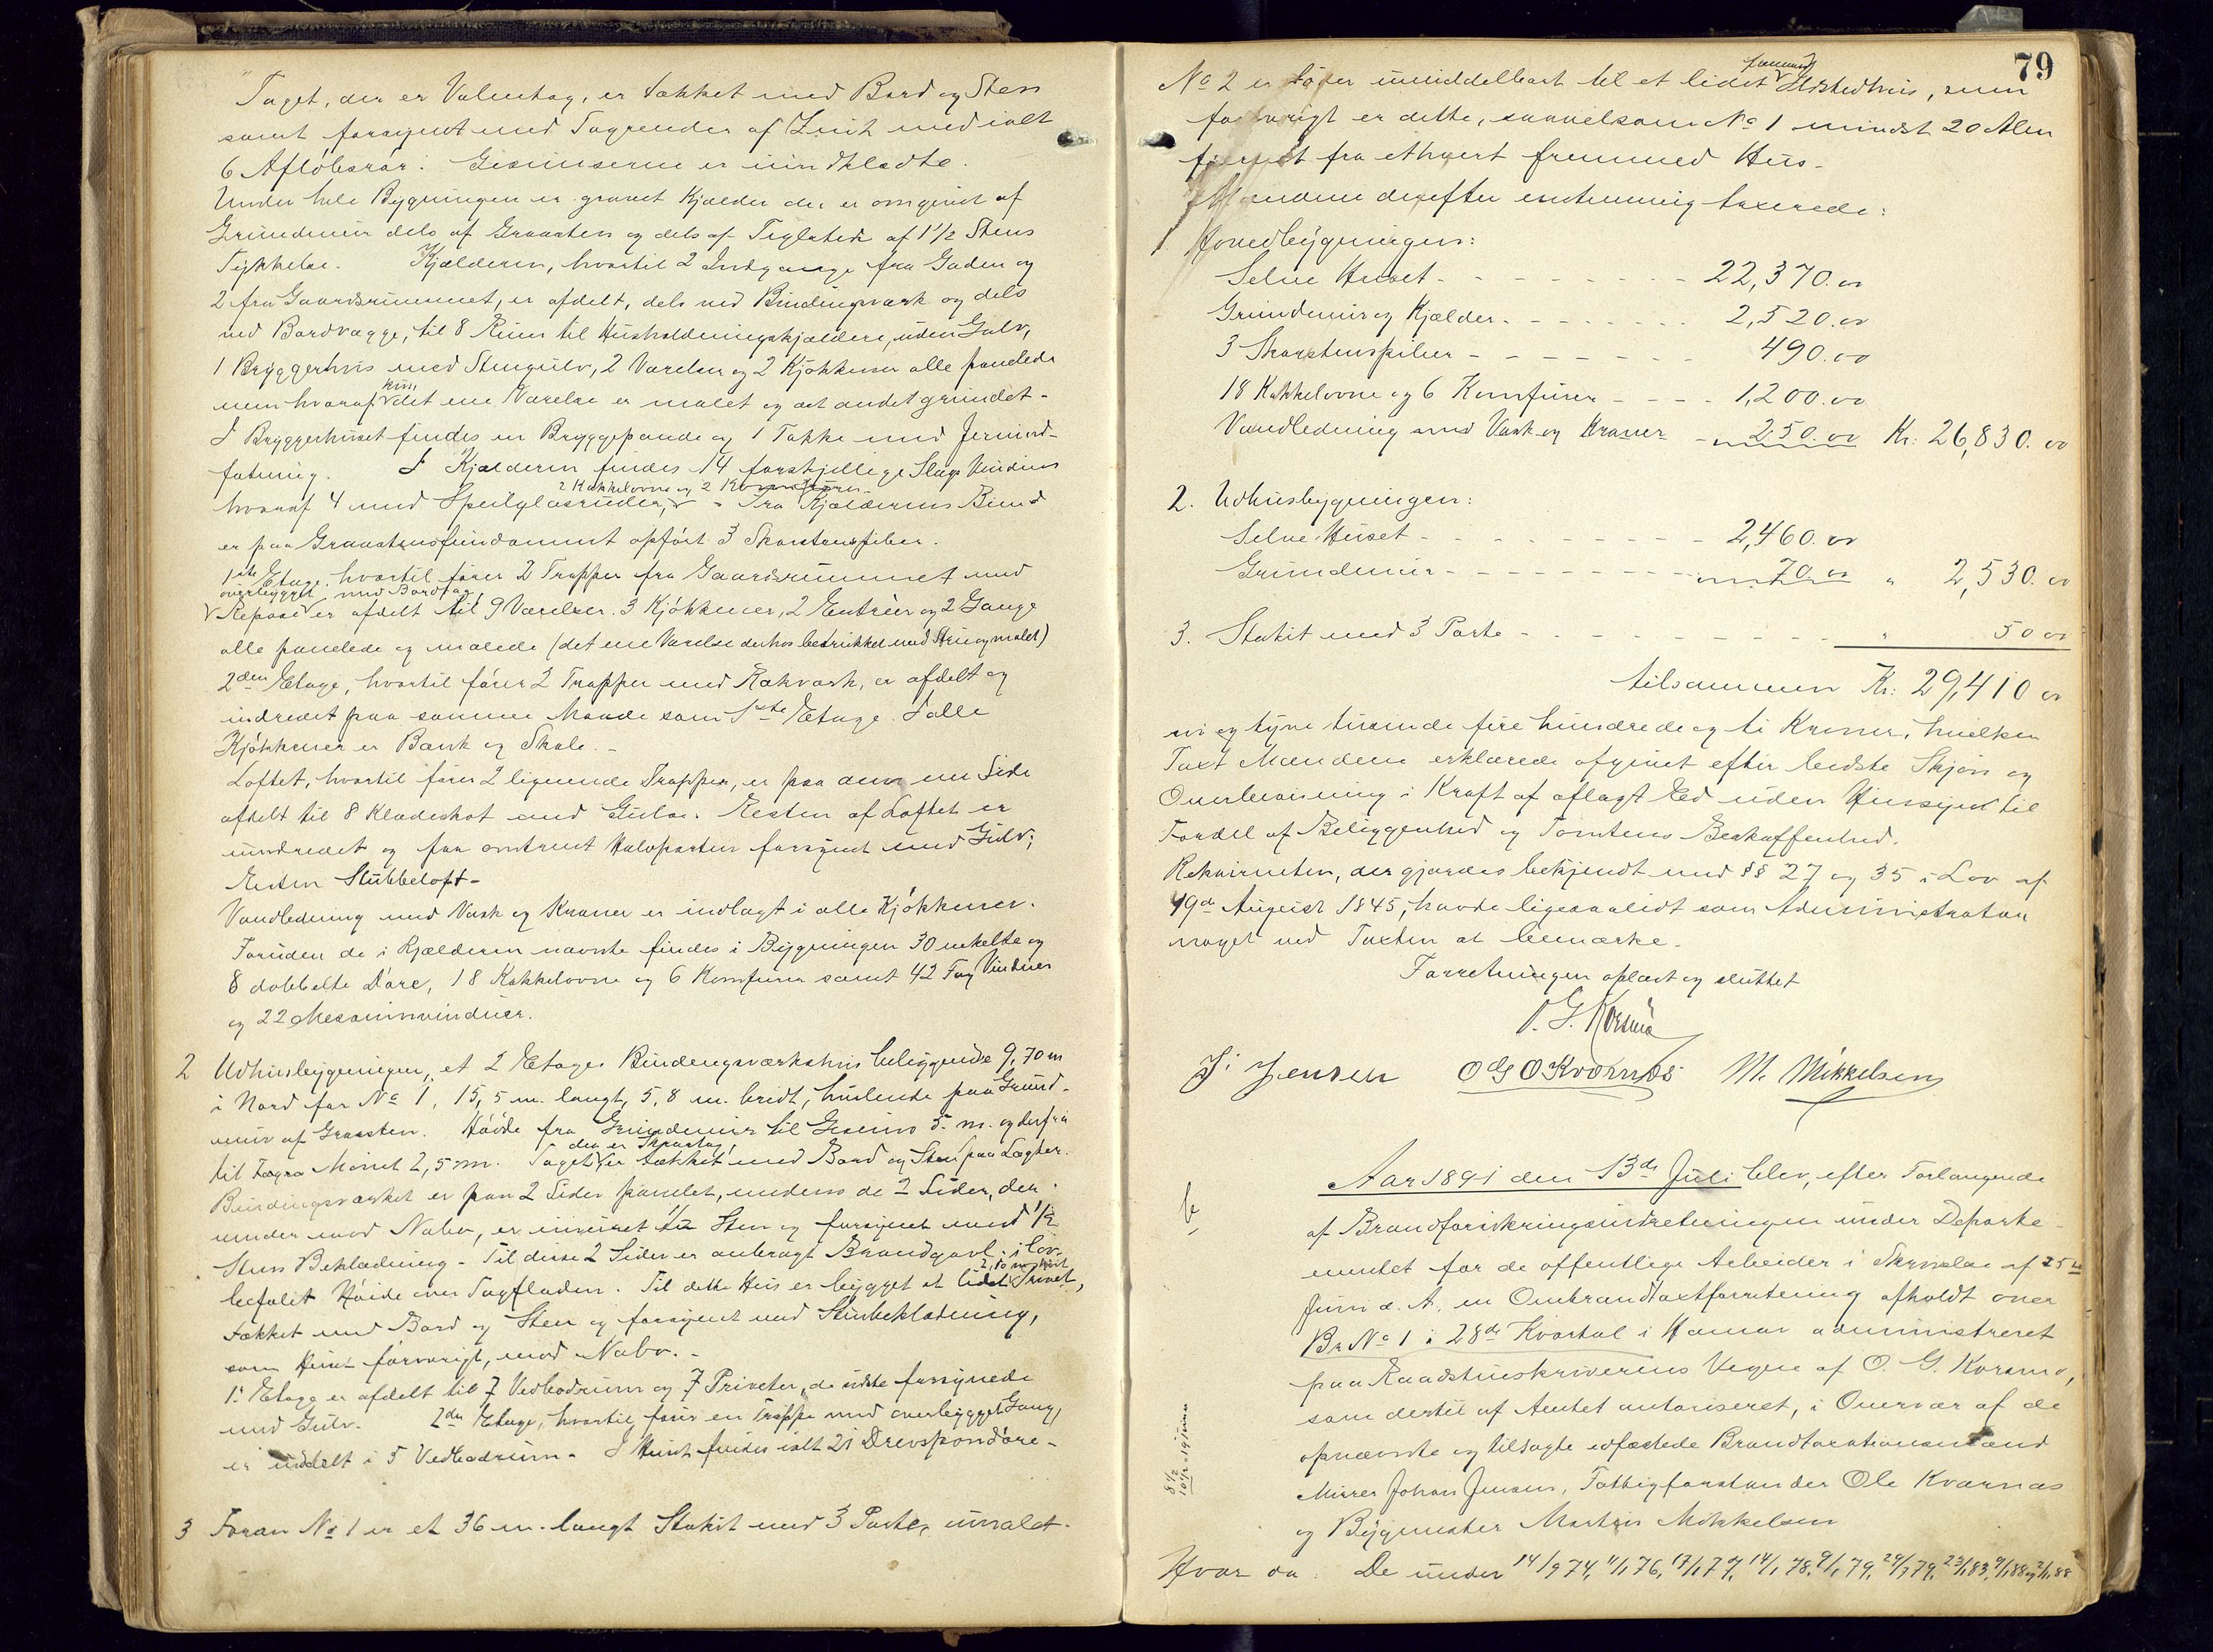 Taget, der er Valmtag, er tækket med Bord og Sten
samt forsynet med Tagrender af Zink med ialt
6 Afløbsrør. Gesimserne er uindklædte.
Under hele Bygningen er gravet Kjælder der er omgivet af
Grundmur dels af Graasten og dels af Teglsten af 1 1/2 Stens
Tykkelse. Kjælderen, hvortil 2 Indgange fra Gaden og
2 fra Gaardsrummet, er afdelt, dels ved Bindingsværk og dels
ved Bordvægge, til 8 Rum til Husholdningskjældere, uden Gulv,
1 Bryggerhus med Stengulv, 2 Værelser og 2 Kjøkkener alle panelede
men hvoraf kun det ene Værelse er malet og det andet grundet-
I Bryggerhuset findes en Bryggepande og 1 Takke med Jernind-
fatning. I Kjælderen findes 14 forskjellige Slags Vinduer
2 Kakkelovne og 2 Komfurer
hvoraf 4 med Speilglasruder, - Fra Kjælderens Bund
er paa Graastensfundament opført 3 Skorstenspiber.
1ste Etage, hvortil fører 2 Trapper fra Gaardsrummet med
overbygget med Bordtag
Repose er afdelt til 9 Værelser, 3 Kjøkkener, 2 Entréer og 2 Gange
alle panelede og malede (det ene Værelse derhos betrukket med Strie og malet)
2den Etage, hvortil fører 2 Trapper med Rækværk, er afdelt og
indredet paa samme Maade som 1ste Etage. I alle
Kjøkkener er Bænk og Skab. -
Loftet, hvortil fører 2 lignende Trapper, er paa den ene Side
afdelt til 8 Klædeskot med Gulve. Resten af Loftet er
uindredet og paa omtrent Halvparten forsynet med Gulv;
Resten Stubbeloft-
Vandledning med Vask og Kraner er indlagt i alle Kjøkkener.
Foruden de i Kjælderen nævnte findes i Bygningen 30 enkelte og
8 dobbelte Døre, 18 Kakkelovne og 6 Komfurer samt 42 Fag Vinduer
og 22 Mesaninvinduer.
2 Udhusbygningen, et 2 Etages Bindingsværkshus beliggende 9,70 m
i Nord for No 1, 15,5 m. langt, 5,8 m. bredt, hvilende paa Grund-
mur af Graasten. Høide fra Grundmur til Gesims 5 m. og derfra
til Tagets Mønet 2,5 m. Taget, der er Skraatag, er tækket med Bord og Sten paa Lægter.
Bindingsværket er paa 2 Sider panelet, medens de 2 Sider, der
vender mod Nabo, er inmuret 1/2 Sten og forsynet med 1/2
Stens Beklædning - Til disse 2 Sider er anbragt Brandgavl i lov-
befalet Høide over Tagfladen. Til dette Hus er bygget et lidet 2,10 m høit Privet,
tækket med Bord og Sten og forsynet med Stenbeklædning,
som Huset forøvrigt, mod Nabo. -
1. Etage er afdelt til 7 Vedbodrum og 7 Priveter, de sidste forsynede
med Gulv. 2den Etage, hvortil fører en Trappe med overbygget Gang,
er inddelt i 5 Vedbodrum - I Huset findes ialt 21 Drevspondøre -
3 Foran No 1 er et 36 m. langt Stakit med 3 Porte, umalet.
79
No 2 er støder umiddelbart til et lidet fremmed Ildstedhus, men
forøvrigt er dette, saavelsom No 1 mindst 20 Alen
fjernet fra ethvert fremmed Hus -
Mændene derefter enstemmig taxerede:
1. Hovedbygningen:
Selve Huset - - - - - - - 22,370.00
Grundmur og Kjælder - - - - - - 2,520.00
3 Skorstenspiber - - - - - - - 490.00
18 Kakkelovne og 6 Komfurer - - - - 1,200.00
Vandledning med Vask og Kraner - 250.00 Kr: 26,830.00
2. Udhusbygningen:
Selve Huset - - - - - - - - - 2,460.00
Grundmur - - - - - - - - 70.00 " 2,530.00
3. Stakit med 3 Porte - - - - - - - - - - " 50 00
tilsammen Kr: 29,410 00
ni og tyve tusinde fire hundrede og ti Kroner, hvilken
Taxt Mændene erklærede afgivet efter bedste Skjøn og
Overbevisning i Kraft af aflagt Ed uden Hensyn til
Fordel af Beliggenhed og Tomtens Beskaffenhed.
Rekvirenten, der gjordes bekjendt med §§ 27 og 35 i Lov af
19de August 1845, havde ligesaalidt som Administrator
noget ved Taxten at bemærke.
Forretningen oplæst og sluttet
O. G. Korsmo
J. Jensen O G O Kværnæs M. Mikkelsen
b
Aar 1891 den 13de Juli blev, efter Forlangende
af Brandforsikringsindretningen under Departe-
mentet for de offentlige Arbeider i Skrivelse af 25de
Juni d. A. en Ombrandtaxtforretning afholdt over
Br No 1 i 28de Kvartal i Hamar administreret
paa Raadstueskriverens Vegne af O. G. Korsmo,
som dertil af Amtet autoriseret, i Overvær af de
opnævnte og tilsagte edfæstede Brandtaxationsmænd
Murer Johan Jensen, Fattigforstander Ole Kværnæs
og Bygmester Martin Mikkelsen
Hvor da: De under 14/9 74, 11/1 76, 17/1 77, 14/1 78, 9/1 79, 29/7 79, 23/1 83, 9/1 88 og 2/1 88